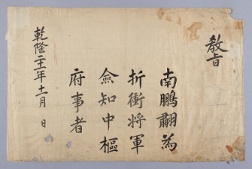 教旨
南鵬翮為
折衝將軍
僉知中樞
府事者
乾隆二十一年十一月 日